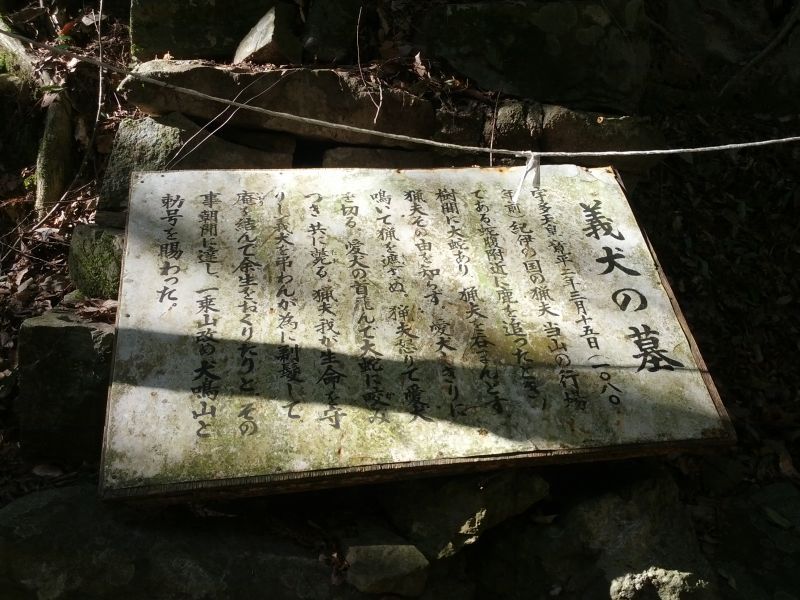 義犬の墓
宇多天皇 寛平二年三月十五日（一〇八〇
年前 紀伊の国の猟夫 当山の行場
である蛇腹附近に鹿を追ったとき
樹間に大蛇あり 猟夫を呑まんとす
猟夫その由を知らず 愛犬しきりに
鳴いて猟を遮ぎぬ、猟夫怒りて愛犬
を切る、愛犬の首飛んで大蛇に咬み
つき 共に斃る 猟夫 我が生命を守
りし義犬を弔わんが為に剃髪して
庵を結んで余生をおくりたりと、その
事朝聞に達し、一乗山改め犬鳴山と
勅号を賜わった。